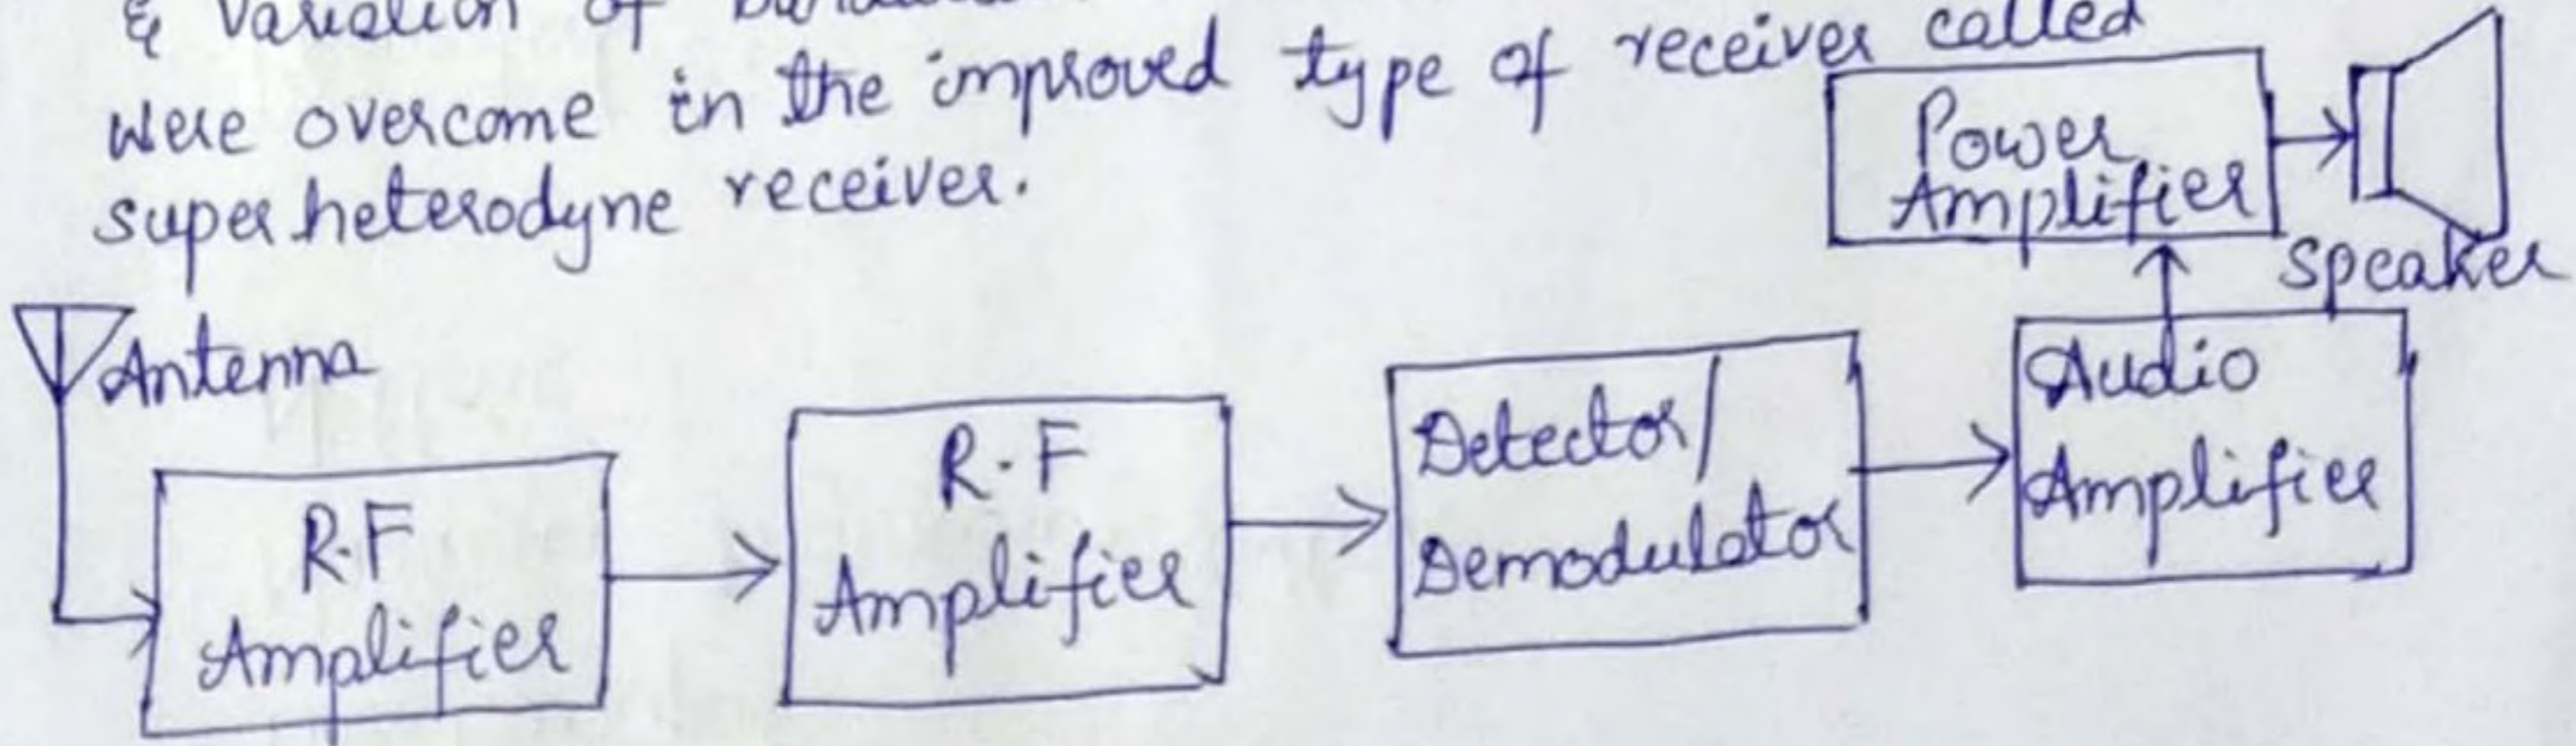 & Variation of
were overcome in the improved type of receiver called
superheterodyne receiver.
Power
Amplifier
speaker
Antenna
R.F
Amplifier
R.F
Amplifier
Detector/
Demodulator
Audio
Amplifier